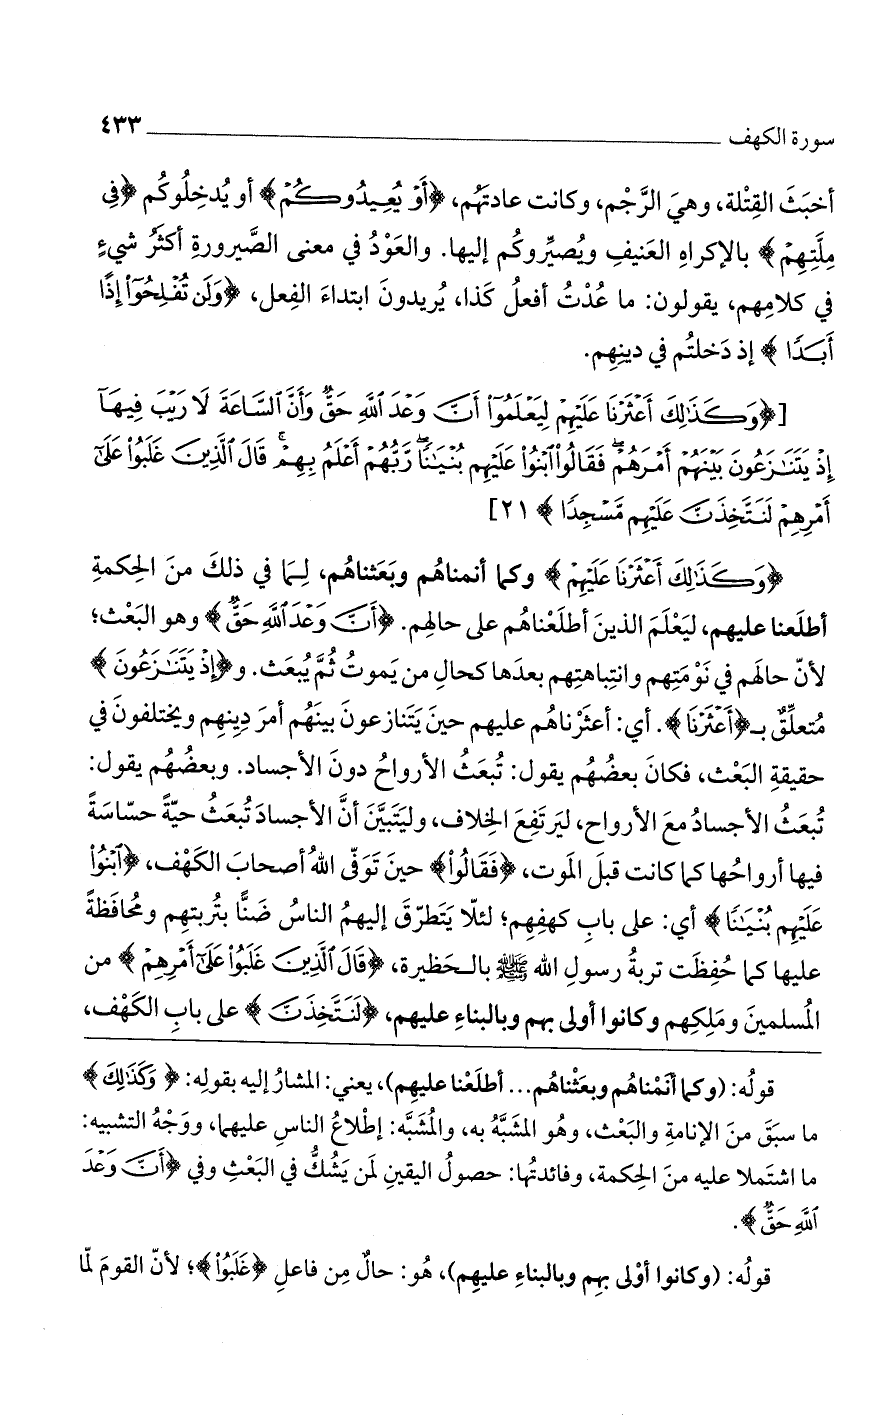 سورة الكهف ٤٣٣
أخبَثَ القِتْلة، وهيَ الرَّجْم، وكانت عادتَهُم، ﴿أَوْ يُعِيدُوكُمْ﴾ أو يُدخِلُوكُم ﴿فِي
مِلَّتِهِمْ﴾ بالإكراهِ العَنيفِ ويُصيِّروكُم إليها. والعَوْدُ في معنى الصَّيرورةِ أكثَرُ شيءٍ
في كلامِهم، يقولون: ما عُدْتُ أفعلُ كَذا، يُريدونَ ابتداءَ الفِعل، ﴿وَلَن تُفْلِحُوٓا۟ إِذًا
أَبَدًا﴾ إذ دَخلتُم في دينِهِم.
[﴿وَكَذَٰلِكَ أَعْثَرْنَا عَلَيْهِمْ لِيَعْلَمُوٓا۟ أَنَّ وَعْدَ ٱللَّهِ حَقٌّ وَأَنَّ ٱلسَّاعَةَ لَا رَيْبَ فِيهَآ
إِذْ يَتَنَٰزَعُونَ بَيْنَهُمْ أَمْرَهُمْ ۖ فَقَالُوا۟ ٱبْنُوا۟ عَلَيْهِم بُنْيَٰنًا ۖ رَّبُّهُمْ أَعْلَمُ بِهِمْ ۚ قَالَ ٱلَّذِينَ غَلَبُوا۟ عَلَىٰٓ
أَمْرِهِمْ لَنَتَّخِذَنَّ عَلَيْهِم مَّسْجِدًا﴾ ٢١]
﴿وَكَذَٰلِكَ أَعْثَرْنَا عَلَيْهِمْ﴾ وكما أنمناهُم وبَعَثناهُم، لِـمَا في ذلكَ منَ الحِكمةِ
أطلَعنا عليهم، ليَعْلَمَ الذينَ أطلَعْناهُم على حالهِم. ﴿أَنَّ وَعْدَ ٱللَّهِ حَقٌّ﴾ وهو البَعْث؛
لأنّ حالَهم في نَوْمَتِهم وانتِباهتِهم بعدَها كحالِ من يَموتُ ثُمَّ يُبعَث. و﴿إِذْ يَتَنَٰزَعُونَ﴾
مُتعلِّقٌ بـ﴿أَعْثَرْنَا﴾. أي: أعثَرْناهُم عليهم حينَ يَتَنازعونَ بينَهُم أمرَ دِينِهم ويختلفونَ في
حقيقةِ البَعْث، فكانَ بعضُهُم يقول: تُبعَثُ الأرواحُ دونَ الأجساد. وبعضُهُم يقول:
تُبعَثُ الأجسادُ معَ الأرواح، ليَرتَفِعَ الخِلاف، وليَتَبيَّنَ أنَّ الأجسادَ تُبعَثُ حيّةً حسّاسَةً
فيها أرواحُها كما كانت قبلَ المَوت، ﴿فَقَالُوا۟﴾ حينَ تَوَفّى اللهُ أصحابَ الكَهْف، ﴿ٱبْنُوا۟
عَلَيْهِم بُنْيَٰنًا﴾ أي: على بابِ كهفِهِم؛ لئلّا يَتَطرّقَ إليهمُ الناسُ ضَنًّا بتُربتِهِم ومُحافَظةً
عليها كما حُفِظَت تربةُ رسولِ الله ﷺ بالـحَظيرة، ﴿قَالَ ٱلَّذِينَ غَلَبُوا۟ عَلَىٰٓ أَمْرِهِمْ﴾ من
المُسلمينَ ومَلِكِهم وكانوا أولى بهم وبالبناءِ عليهم، ﴿لَنَتَّخِذَنَّ﴾ على بابِ الكَهْف،
قولُه: (وكما أنَمْناهُم وبعَثْناهُم... أطلَعْنا عليهِم)، يعني: المشارُ إليه بقولِه: ﴿وَكَذَٰلِكَ﴾
ما سبَقَ منَ الإنامةِ والبَعْث، وهُو المشبَّهُ به، والمُشبَّه: إطْلاعُ الناسِ عليهما، ووَجْهُ التشبيه:
ما اشتَملا عليه منَ الحِكمة، وفائدتُها: حصولُ اليقينِ لمَن يَشُكُّ في البَعْثِ وفي ﴿أَنَّ وَعْدَ
ٱللَّهِ حَقٌّ﴾.
قولُه: (وكانوا أوْلى بهِم وبالبناءِ عليهِم)، هُو: حالٌ مِن فاعلِ ﴿غَلَبُوا۟﴾؛ لأنّ القومَ لمّا